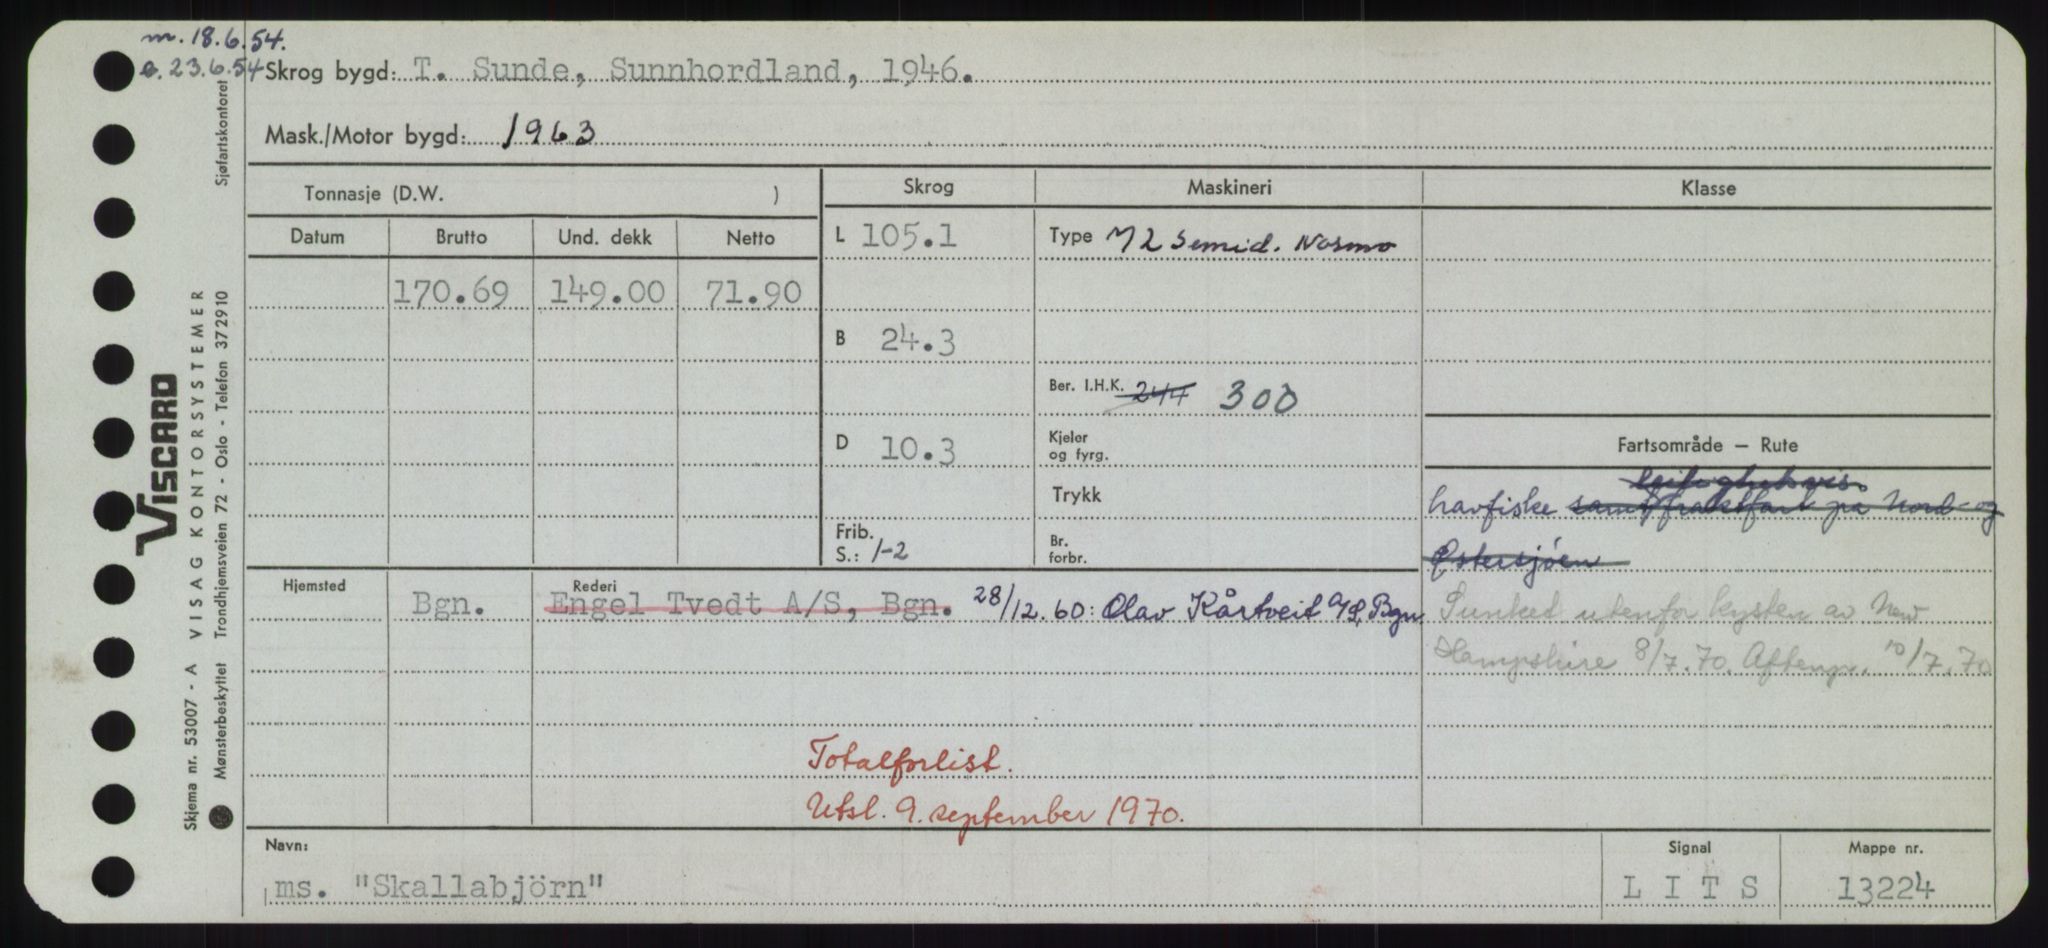 m. 18.6.54.
e. 23.6.54
Skrog bygd: T. Sunde, Sunnhordland, 1946.
Mask./Motor bygd: 1963
Tonnasje (D.W. )
Skrog
Maskineri
Klasse
Datum
Brutto
Und. dekk
Netto
L 105.1
Type M 2 Semid. Normo
170.69
149.00
71.90
B 24.3
Ber. I.H.K. 244 300
D 10.3
Kjeler
og fyrg.
Fartsområde — Rute
leilighetsvis
Trykk
havfiske samt fraktfart på Nord- og
Frib.
S.: 1-2
Br.
forbr.
Østersjöen
Hjemsted
Rederi
Bgn.
Engel Tvedt A/S, Bgn. 28/12.60: Olav Kårtveit A/S, Bgn.
Sunket utenfor kysten av New
Hampshire 8/7.70. Aftenp. 10/7.70
Totalforlist.
Utsl. 9. september 1970.
Navn:
Signal
Mappe nr.
ms. "Skallabjörn"
L I T S
13224
Sjøfartskontoret
VISCARD
VISAG KONTORSYSTEMER
Trondhjemsveien 72 - Oslo - Telefon 372910
Skjema nr. 53007 - A
Mønsterbeskyttet